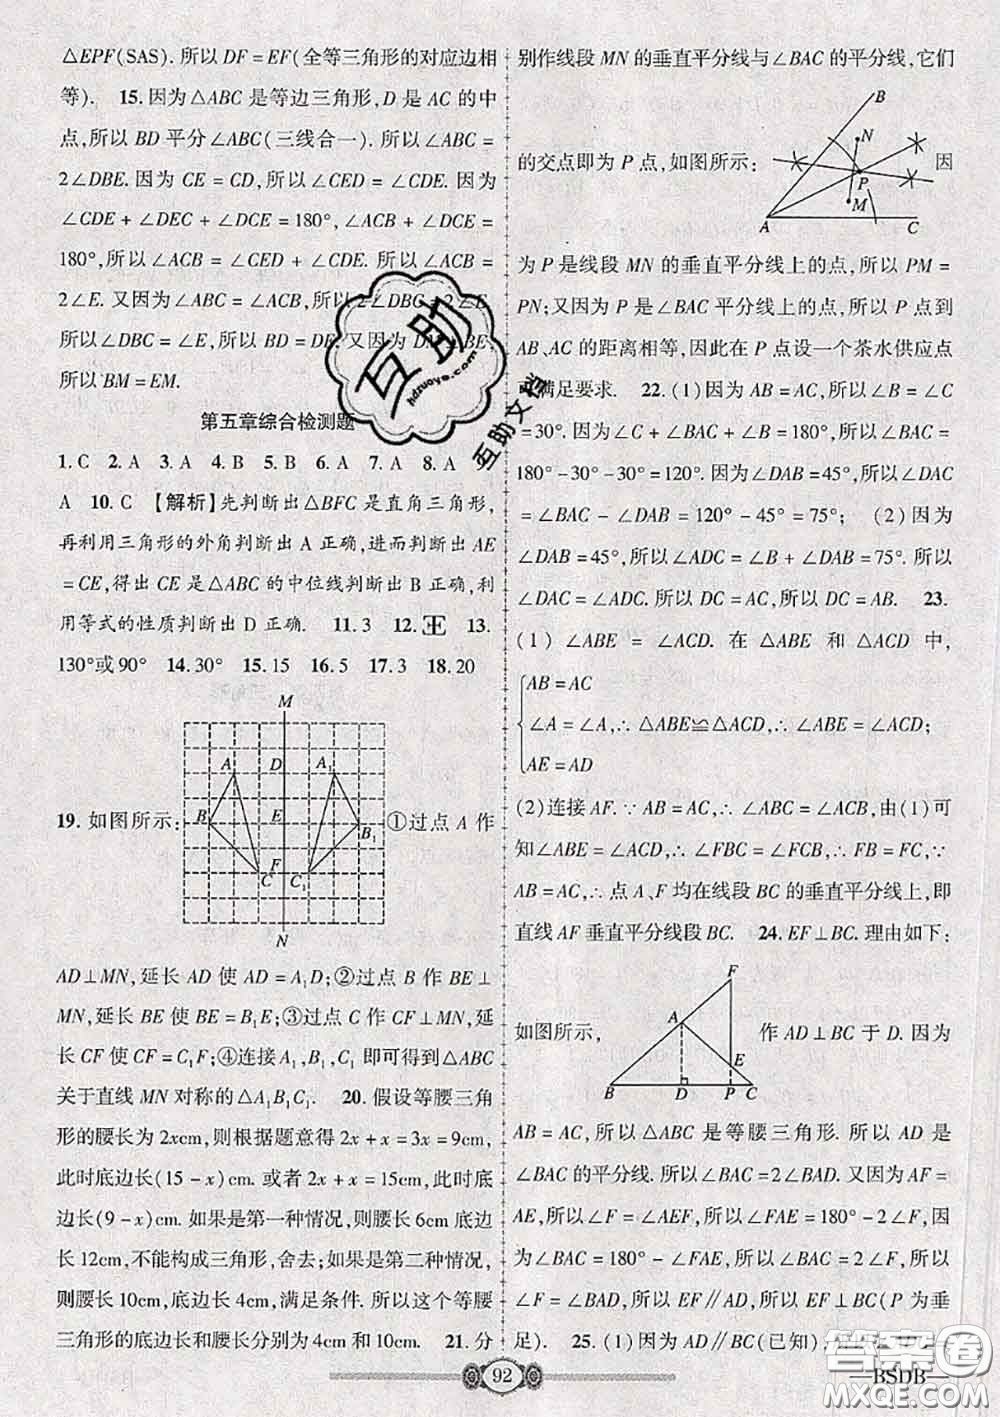 △EPF(SAS). 所以 DF = EF(全等三角形的对应边相
等). 15. 因为△ABC 是等边三角形, D 是 AC 的中
点, 所以 BD 平分∠ABC(三线合一). 所以∠ABC =
2∠DBE. 因为 CE = CD, 所以∠CED = ∠CDE. 因为
∠CDE + ∠DEC + ∠DCE = 180°, ∠ACB + ∠DCE =
180°, 所以∠ACB = ∠CED + ∠CDE. 所以∠ACB =
2∠E. 又因为∠ABC = ∠ACB, 所以 2∠DBC = 2∠E.
∠DBC = ∠E, 所以 BD = DE. 又因为 DM⊥BE,
所以 BM = EM.
第五章综合检测题
1. C 2. A 3. A 4. B 5. B 6. A 7. A 8. A 9.
A 10. C 【解析】先判断出△BFC 是直角三角形,
再利用三角形的外角判断出 A 正确, 进而判断出 AE
= CE, 得出 CE 是△ABC 的中位线判断出 B 正确, 利
用等式的性质判断出 D 正确. 11. 3 12. 王 13.
130°或 90° 14. 30° 15. 15 16. 10 17. 3 18. 20
M
A D A₁
B E B₁
F
C C₁
N
19. 如图所示: ①过点 A 作
AD⊥MN, 延长 AD 使 AD = A₁D; ②过点 B 作 BE⊥
MN, 延长 BE 使 BE = B₁E; ③过点 C 作 CF⊥MN, 延
长 CF 使 CF = C₁F; ④连接 A₁, B₁, C₁ 即可得到△ABC
关于直线 MN 对称的△A₁B₁C₁. 20. 假设等腰三角
形的腰长为 2xcm, 则根据题意得 2x + x = 3x = 9cm,
此时底边长(15 - x)cm. 或者 2x + x = 15cm, 此时底
边长(9 - x)cm. 如果是第一种情况, 则腰长 6cm 底边
长 12cm, 不能构成三角形, 舍去; 如果是第二种情况,
则腰长 10cm, 底边长 4cm, 满足条件. 所以这个等腰
三角形的底边长和腰长分别为 4cm 和 10cm. 21. 分
别作线段 MN 的垂直平分线与∠BAC 的平分线, 它们
B
N
P
M
A C
的交点即为 P 点, 如图所示: 因
为 P 是线段 MN 的垂直平分线上的点, 所以 PM =
PN; 又因为 P 是∠BAC 平分线上的点, 所以 P 点到
AB、AC 的距离相等, 因此在 P 点设一个茶水供应点
可满足要求. 22. (1) 因为 AB = AC, 所以∠B = ∠C
= 30°. 因为∠C + ∠BAC + ∠B = 180°, 所以∠BAC =
180° - 30° - 30° = 120°. 因为∠DAB = 45°, 所以∠DAC
= ∠BAC - ∠DAB = 120° - 45° = 75°; (2) 因为
∠DAB = 45°, 所以∠ADC = ∠B + ∠DAB = 75°. 所以
∠DAC = ∠ADC. 所以 DC = AC, 所以 DC = AB. 23.
(1) ∠ABE = ∠ACD. 在△ABE 和△ACD 中,
AB = AC
∠A = ∠A, ∴△ABE≌△ACD, ∴∠ABE = ∠ACD;
AE = AD
(2) 连接 AF. ∵AB = AC, ∴∠ABC = ∠ACB, 由(1)可
知∠ABE = ∠ACD, ∴∠FBC = ∠FCB, ∴FB = FC, ∵
AB = AC, ∴点 A、F 均在线段 BC 的垂直平分线上, 即
直线 AF 垂直平分线段 BC. 24. EF⊥BC. 理由如下:
F
A
E
B D P C
如图所示, 作 AD⊥BC 于 D. 因为
AB = AC, 所以△ABC 是等腰三角形. 所以 AD 是
∠BAC 的平分线. 所以∠BAC = 2∠BAD. 又因为 AF =
AE, 所以∠F = ∠AEF, 所以∠FAE = 180° - 2∠F, 因
为∠BAC = 180° - ∠FAE, 所以∠BAC = 2∠F, 所以
∠F = ∠BAD, 所以 EF∥AD, 所以 EF⊥BC(P 为垂
足). 25. (1) 因为 AD∥BC(已知), 
92
—BSDB—
互助
hdzuoye.com
互助文档
答案圈
MXQE.COM